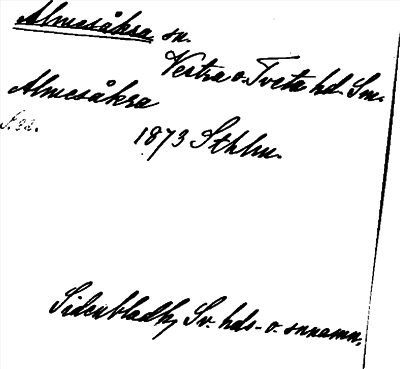 Almesåkra sn.
Vestra o. Tveta hd. Sm.
Almesåkra
1873 Sthlm.
Sidenbladh, Sv. hds- o. snnamn.